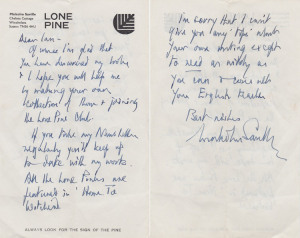 Malcolm Saville
Chelsea Cottage
Winchelsea
Sussex TN36 4HU
LONE
PINE
Dear Ian -
Of course I'm glad that
you have discovered my books
& I hope you will help me
by making your own
collection of them & joining
the Lone Pine Club.
If you take my Newsletter
regularly you'll keep up
to date with my works.
All the Lone Pines are
featured in 'Home To
Witchend'
ALWAYS LOOK FOR THE SIGN OF THE PINE
I'm sorry that I can't
give you any 'tips' about
your own writing except
to read as widely as
you can & consult
your English teacher
Best wishes
Malcolm Saville